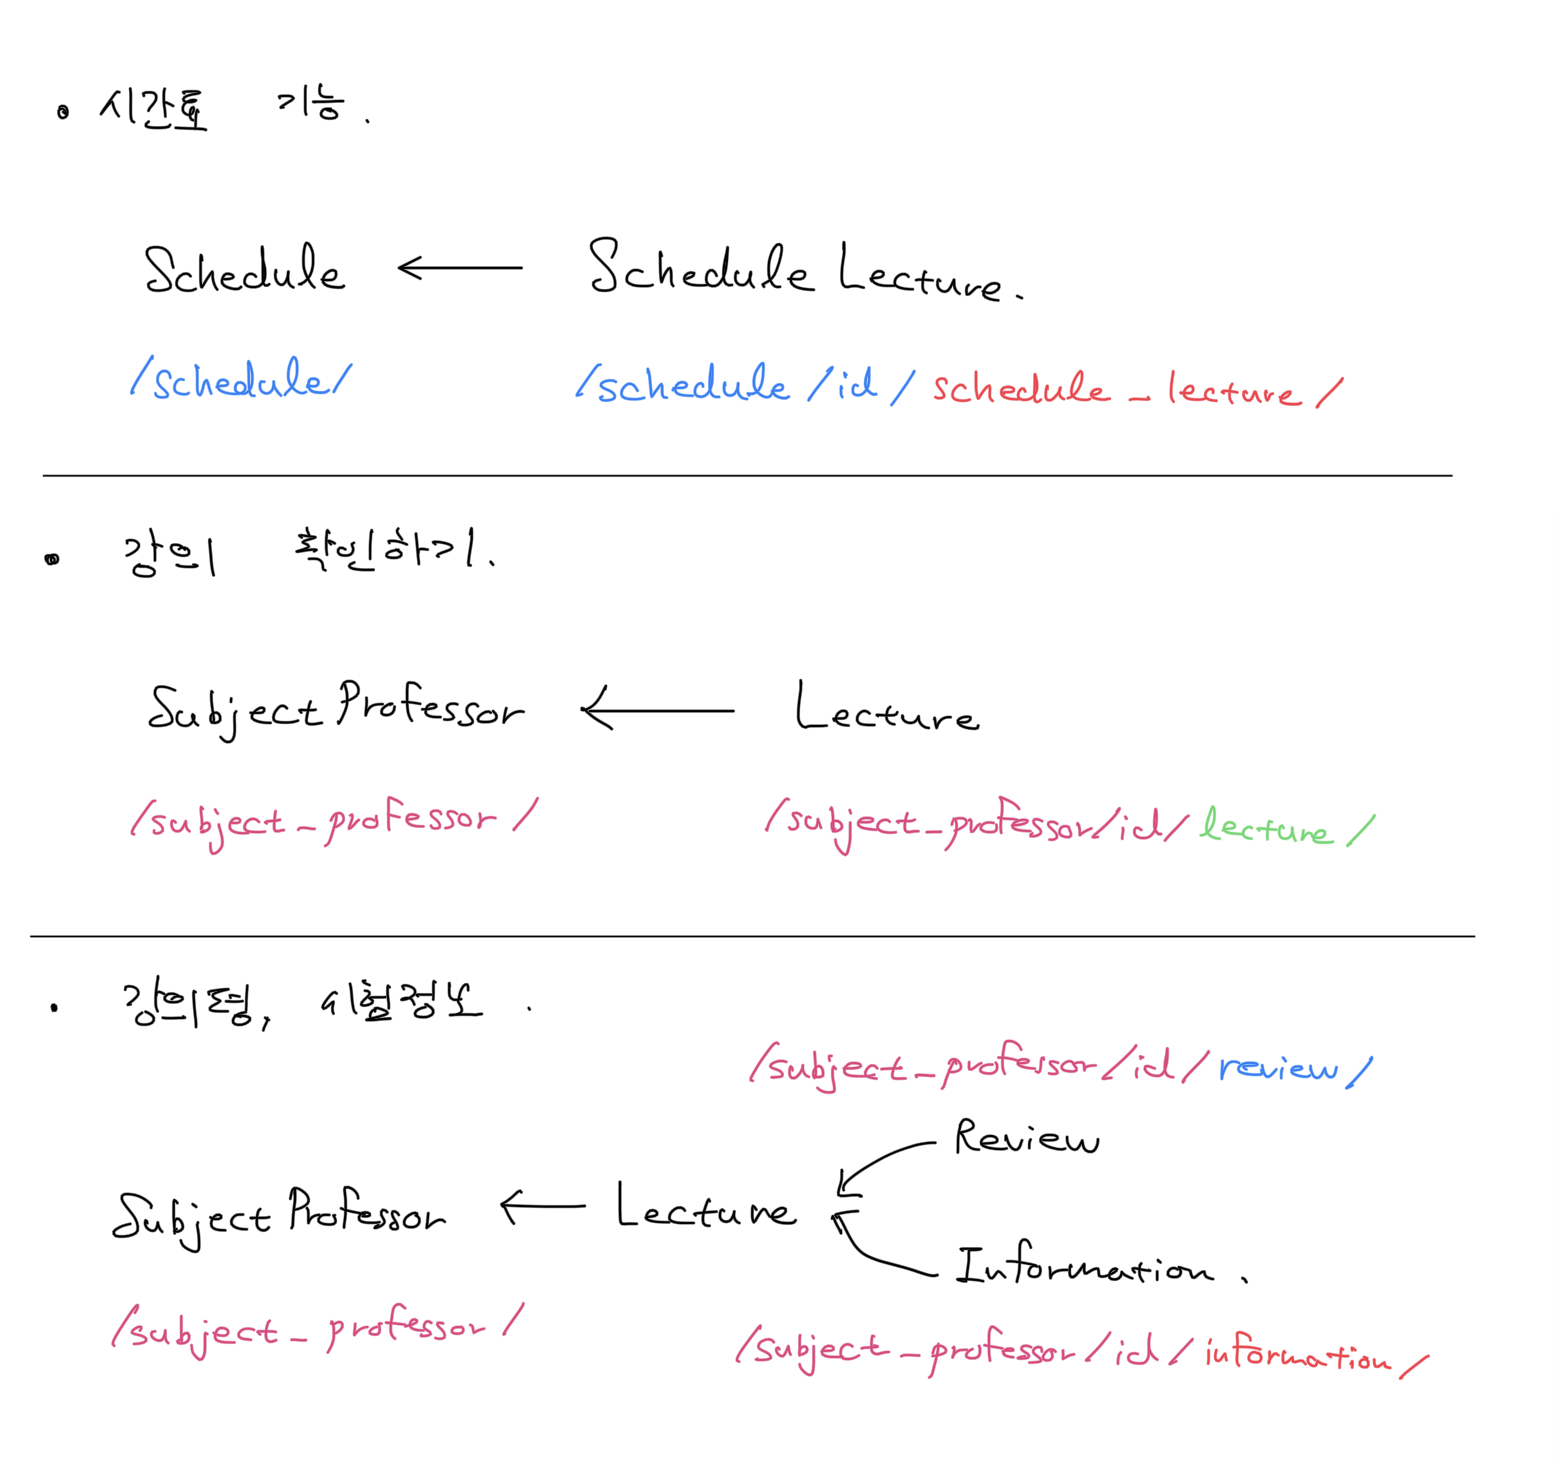 • 시간표 기능.
Schedule ← Schedule Lecture.
/schedule/ /schedule/id/schedule_lecture/
• 강의 확인하기.
Subject Professor ← Lecture
/subject_professor/ /subject_professor/id/lecture/
• 강의평, 시험정보.
/subject_professor/id/review/
Review
Subject Professor ← Lecture
Information.
/subject_professor/ /subject_professor/id/information/